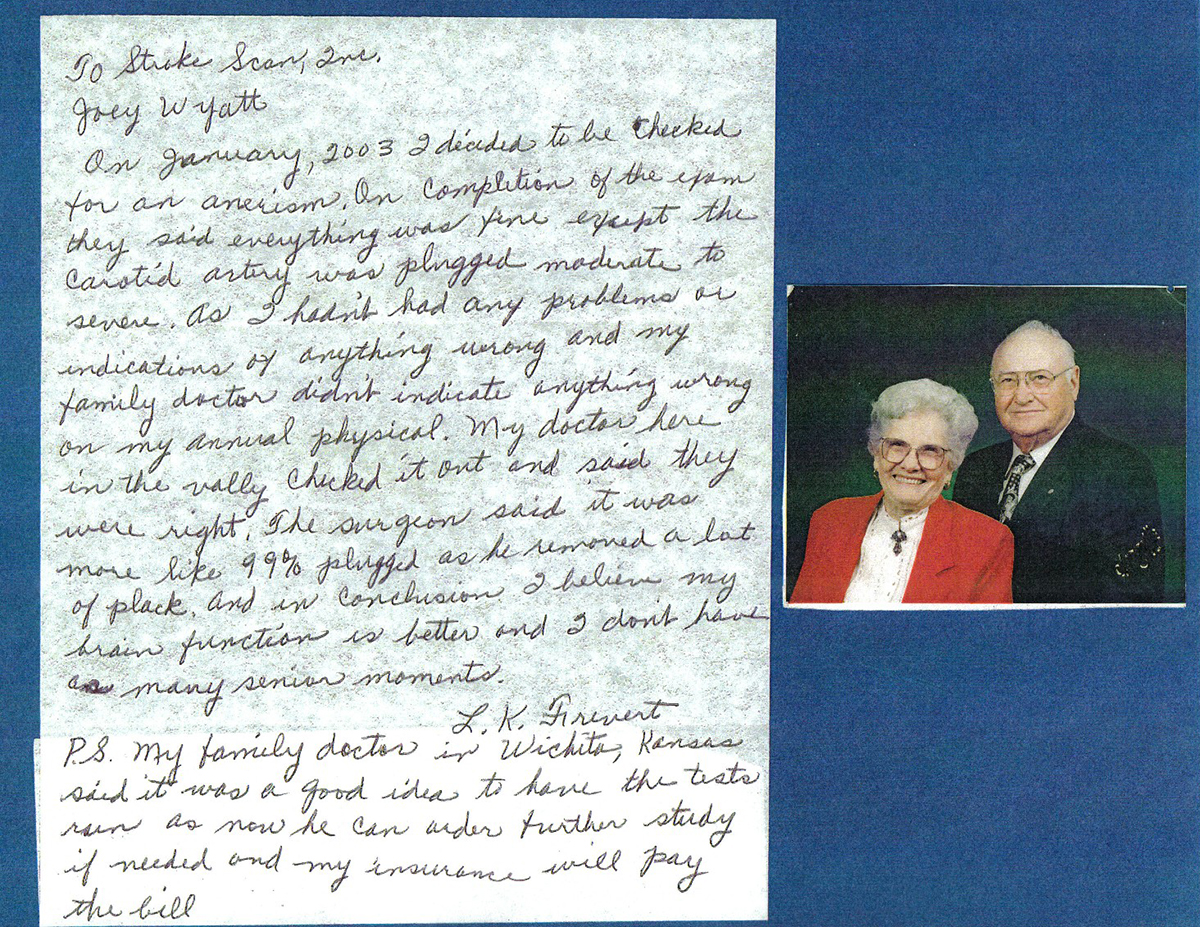 To Stroke Scan, Inc.
Joey Wyatt
On January, 2003 I decided to be checked
for an anerism. On completion of the exam
they said everything was fine exsept the
carotid artery was plugged moderate to
severe. As I hadn't had any problems or
indications of anything wrong and my
family doctor didn't indicate anything wrong
on my annual physical. My doctor here
in the vally checked it out and said they
were right. The surgeon said it was
more like 99% plugged as he removed a lot
of plack. And in conclusion I believe my
brain function is better and I don't have
as many senior moments.
L. K. Frevert
P.S. My family doctor in Wichita, Kansas
said it was a good idea to have the tests
run as now he can order further study
if needed and my insurance will pay
the bill